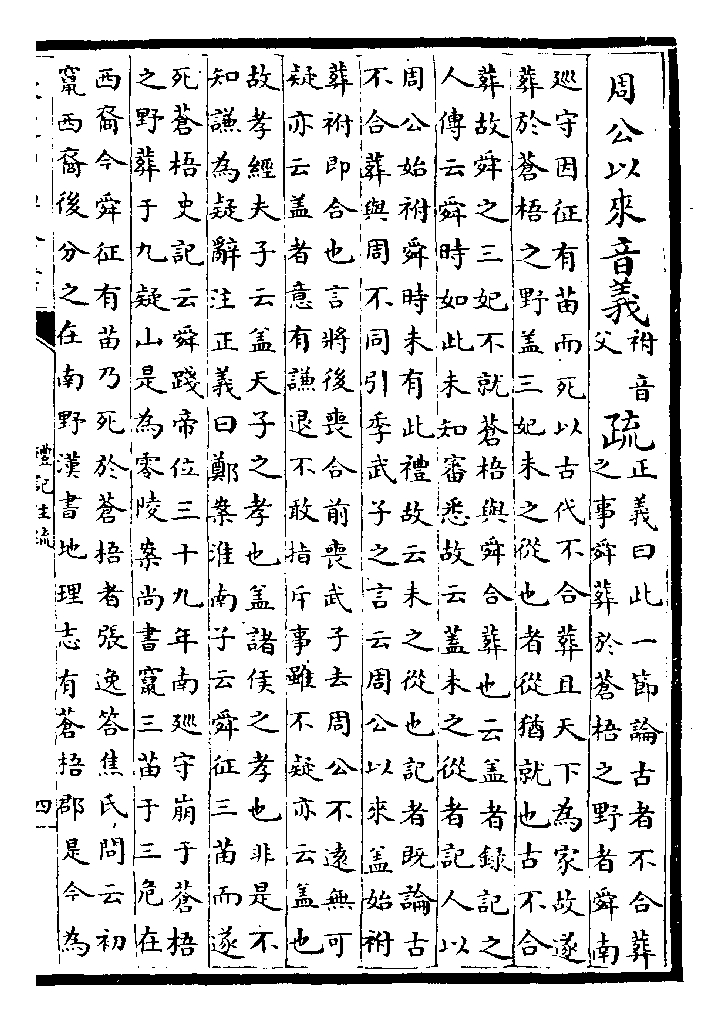 周公以來音義祔音父疏正義曰此一節論古者不合葬
之事舜葬於蒼梧之野者舜南
廵守因征有苗而死以古代不合葬且天下為家故遂
葬於蒼梧之野盖三妃未之從也者從猶就也古不合
葬故舜之三妃不就蒼梧與舜合葬也云盖者錄記之
人傳云舜時如此未知審悉故云蓋未之從者記人以
周公始祔舜時未有此禮故云未之從也記者既論古
不合葬與周不同引季武子之言云周公以來盖始祔
葬祔即合也言將後喪合前喪武子去周公不逺無可
疑亦云盖者意有謙退不敢指斥事雖不疑亦云盖也
故孝經夫子云盖天子之孝也盖諸侯之孝也非是不
知謙為疑辭注正義曰鄭案淮南子云舜征三苗而遂
死蒼梧史記云舜踐帝位三十九年南廵守崩于蒼梧
之野葬于九疑山是為零陵案尚書竄三苗于三危在
西裔今舜征有苗乃死於蒼梧者張逸答焦氏問云初
竄西裔後分之在南野漢書地理志有蒼梧郡是今為
禮記注疏
四